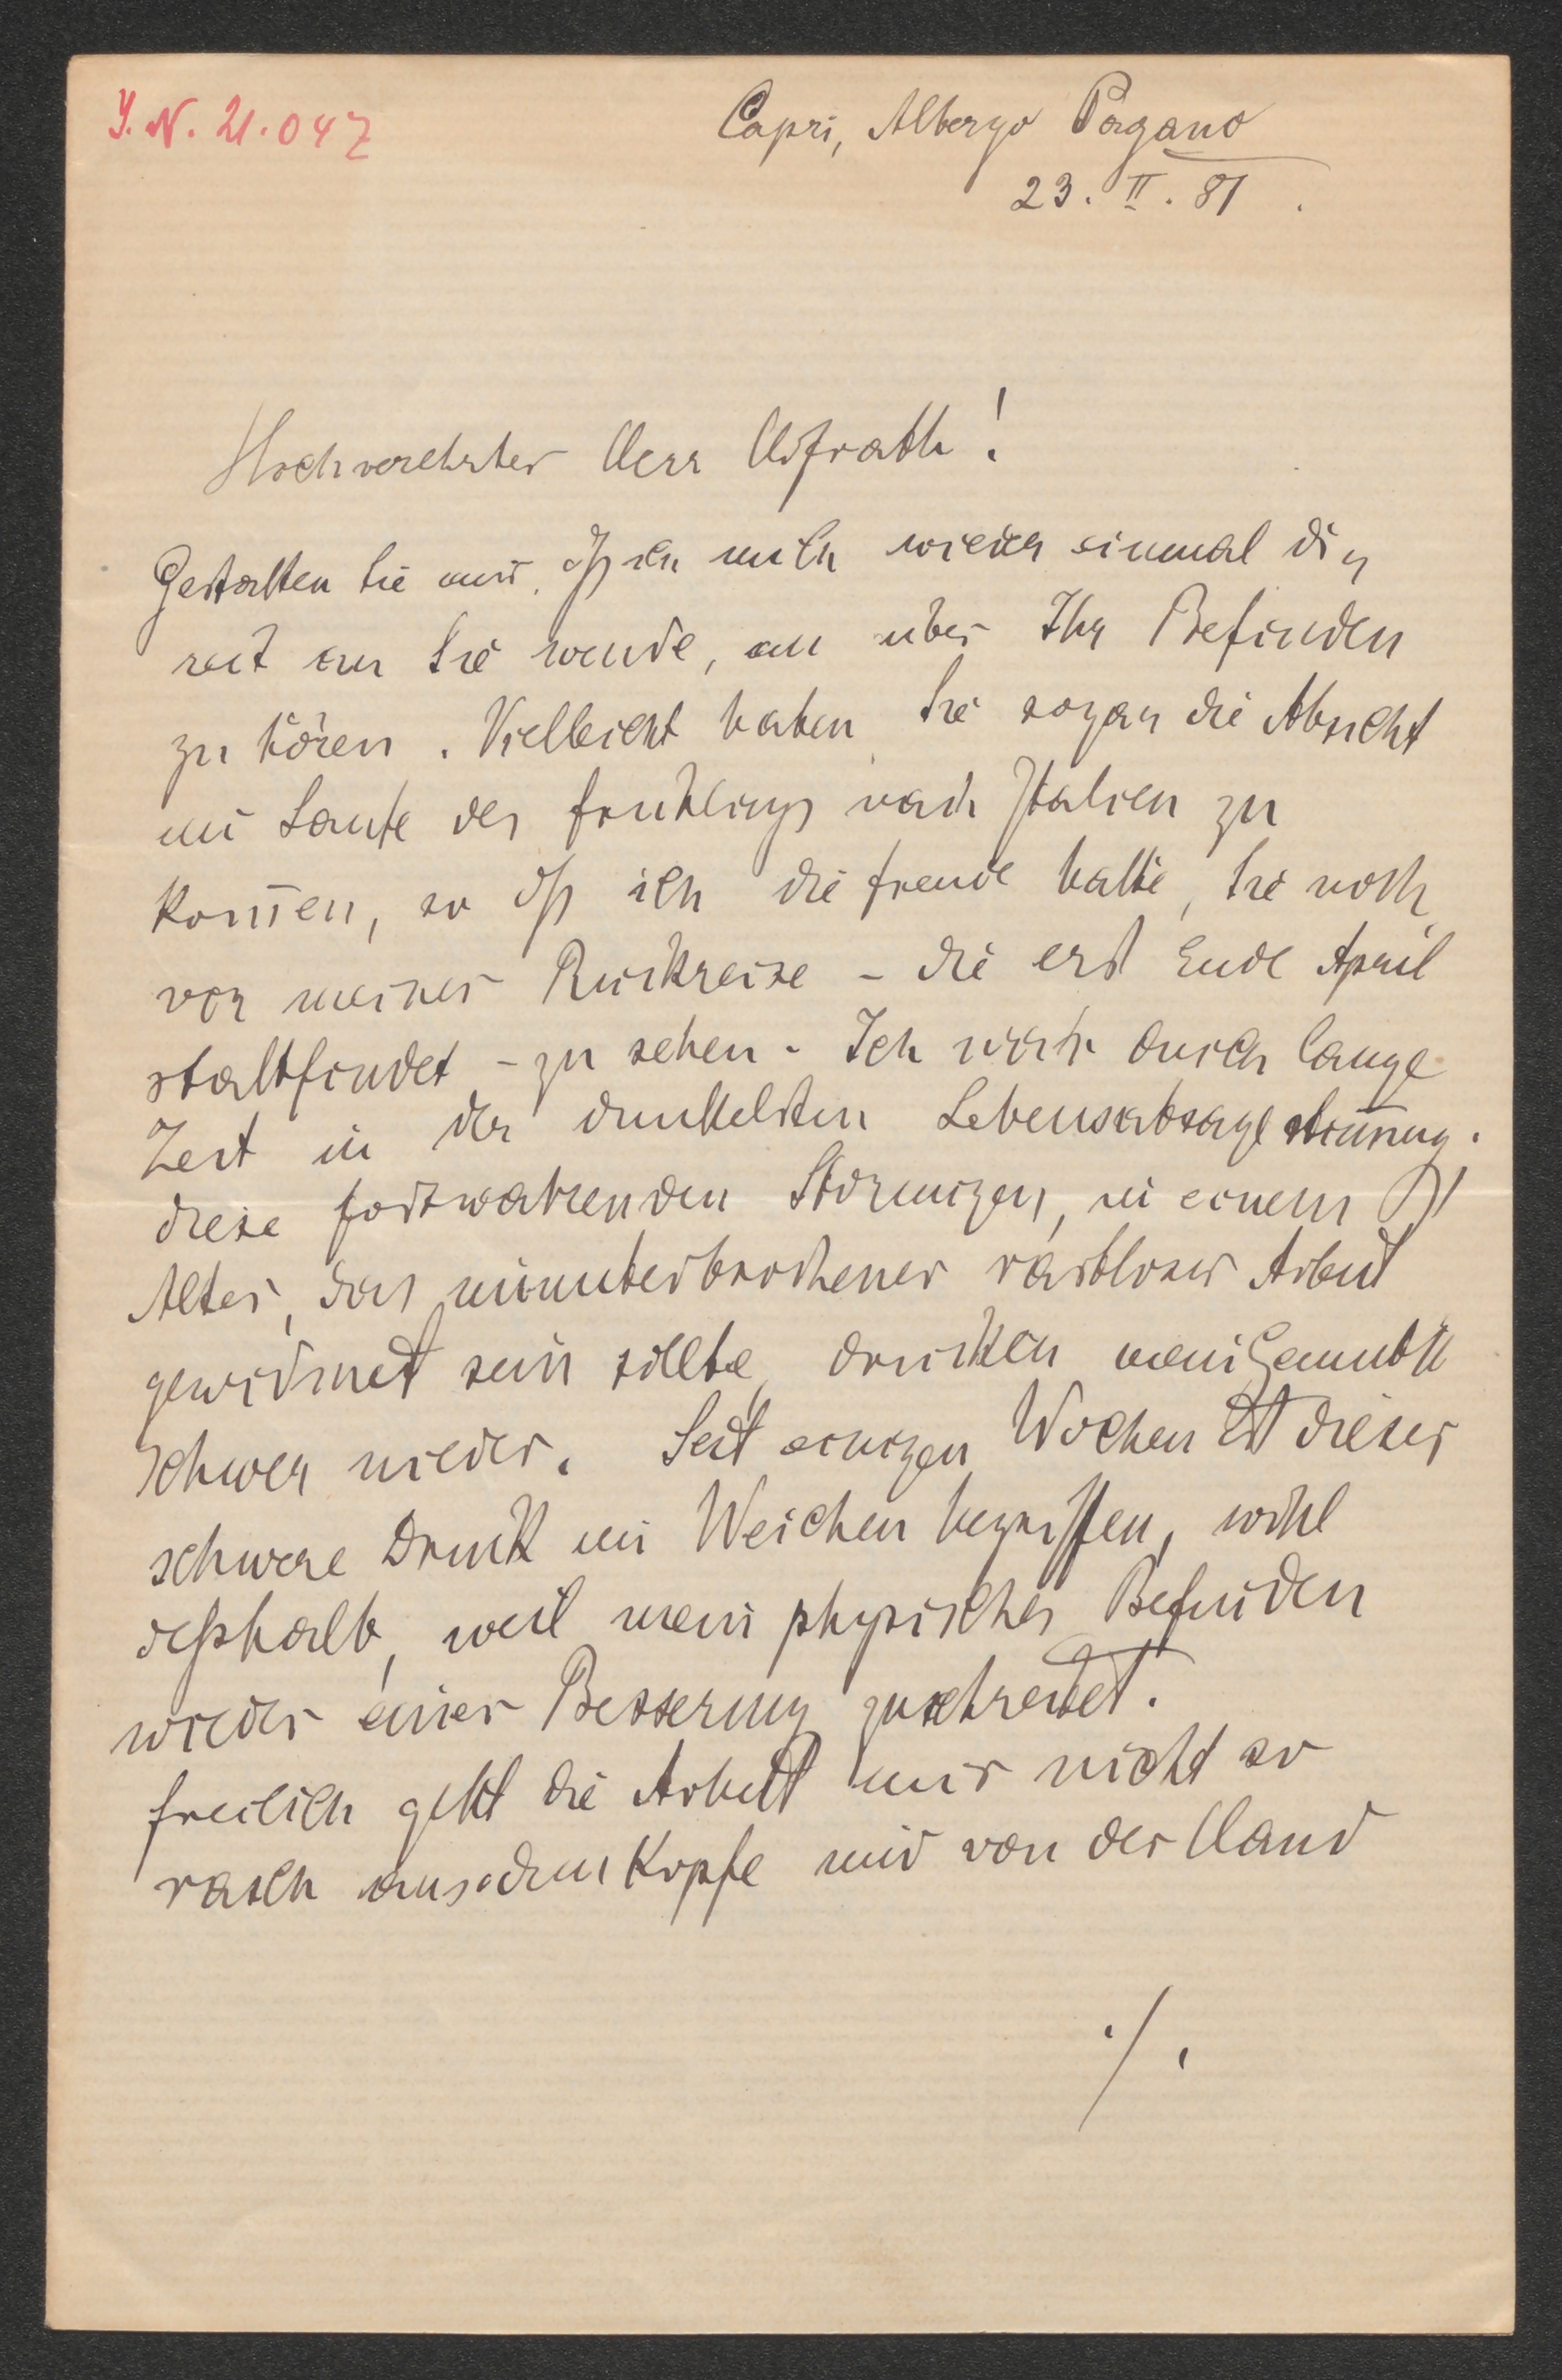 J. N. 21.047
Capri, Albergo Pagano
23. II. 81.
Hochverehrter Herr Hofrath!
Gestatten Sie mir, dß ich mich wieder einmal di¬
rect an Sie wende, um über Ihr Befinden
zu hören. Vielleicht haben Sie sogar die Absicht
im Laufe des Frühlings nach Italien zu
kom̄en, so dß ich die Freude hätte, Sie noch
vor meiner Rückreise – die erst Ende April
stattfindet – zu sehen. Ich war durch lange
Zeit in der dunkelsten Lebensabsagestim̄ung.
diese fortwährenden Störungen, in einem
Alter, das ununterbrochener rastloser Arbeit
gewidmet sein sollte, drücken mein Gemüth
schwer nieder. Seit einigen Wochen ist dieser
schwere Druck im Weichen begriffen, wohl
deßhalb, weil mein physisches Befinden
wieder einer Besserung zuschreitet.
freilich geht die Arbeit mir nicht so
rasch aus dem Kopfe und von der Hand
./.